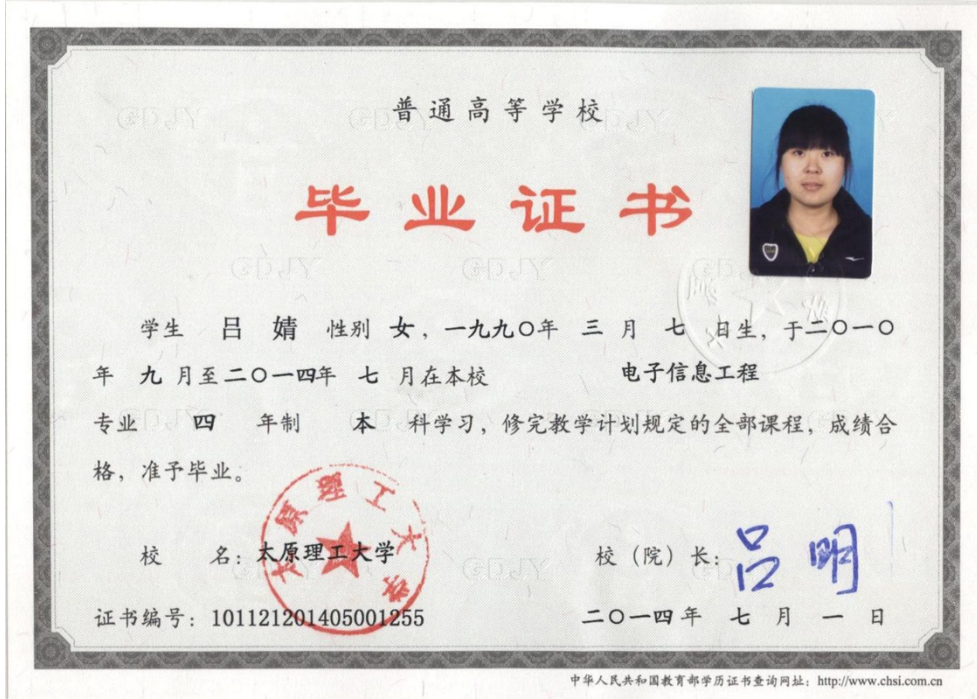 普通高等学校
毕业证书
学生 吕婧 性别 女，一九九〇年 三 月 七 日生，于二〇一〇
年 九 月至二〇一四年 七 月在本校 电子信息工程
专业 四 年制 本 科学习，修完教学计划规定的全部课程，成绩合
格，准予毕业。
太原理工大学
校 名：太原理工大学 校（院）长：吕明
证书编号：101121201405001255 二〇一四年 七 月 一 日
中华人民共和国教育部学历证书查询网址：http://www.chsi.com.cn